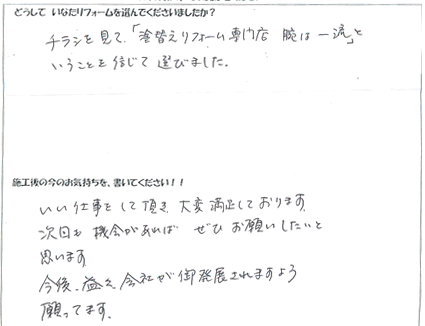 どうして いなたリフォームを選んでくださいましたか?
チラシを見て、「塗替えリフォーム専門店 腕は一流」と
いうことを信じて 選びました。
施工後の今のお気持ちを、書いてください!!
いい仕事をして頂き、大変満足しております。
次回も 機会があれば ぜひ お願いしたいと
思います
今後、益々、会社が御発展されますよう
願ってます。